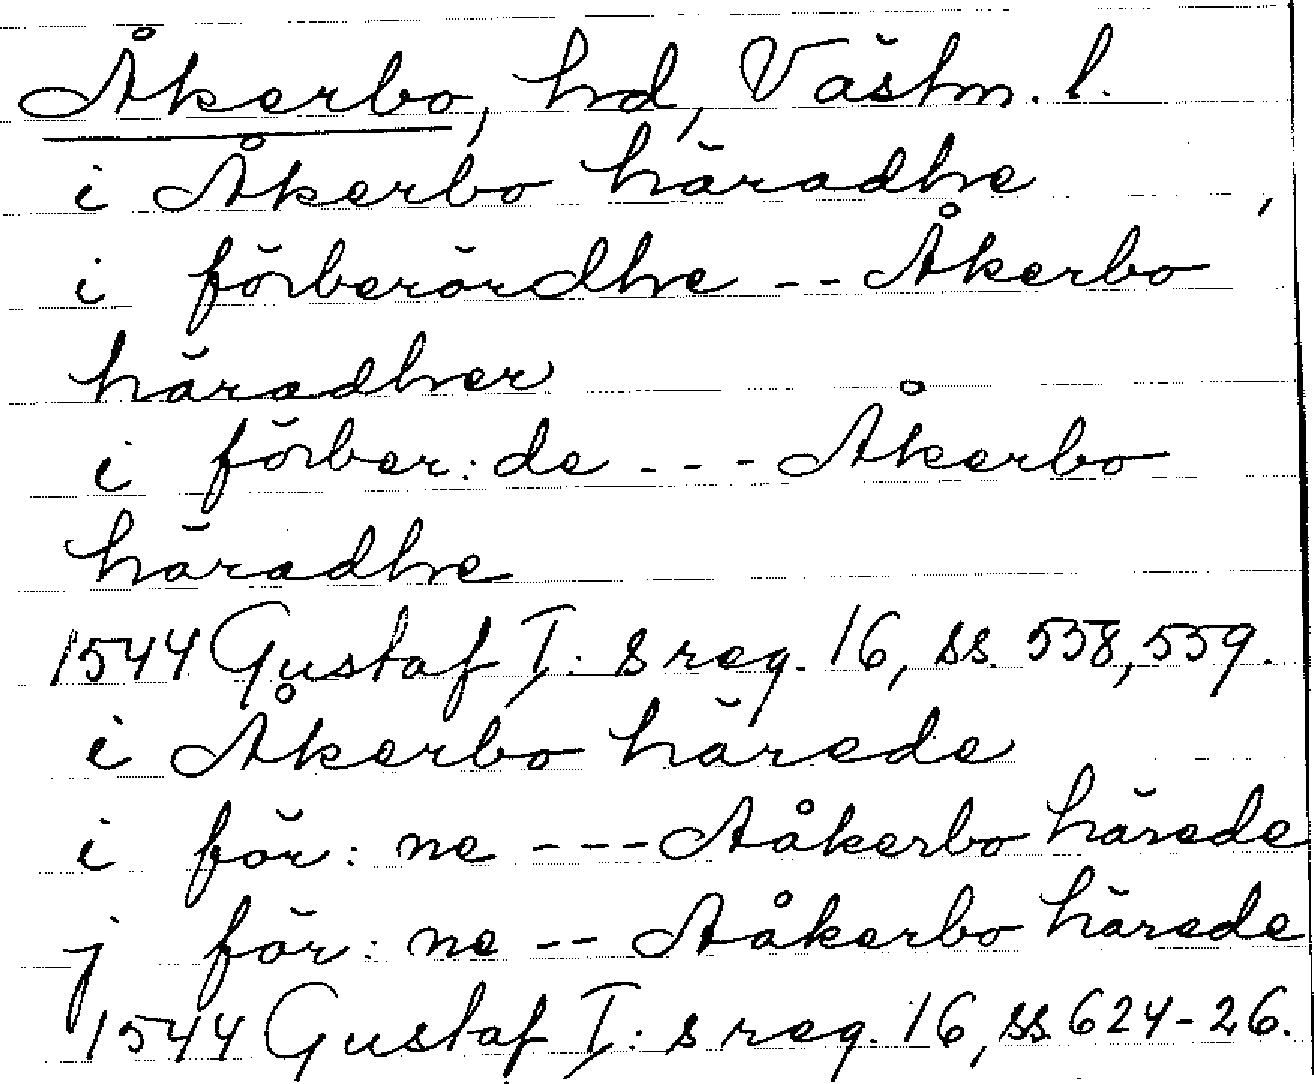 Åkerbo, hd, Västm. l.
i Åkerbo häradhe ,
i förberördhe -- Åkerbo
häradher
i förber: de --- Åkerbo
häradhe
1544 Gustaf I: s reg. 16, ss. 558, 559.
i Åkerbo härede
i för: ne --- Aåkerbo härede
j för: ne -- Aåkerbo härede
1544 Gustaf I: s reg. 16, ss 624-26.